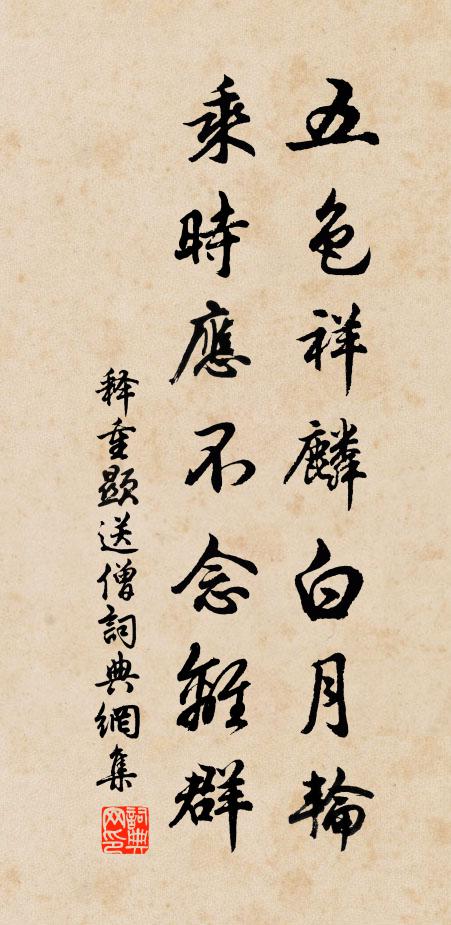 五色祥麟白月輪
乘時應不念離群
释重顯送僧詞典網集
詞典网印